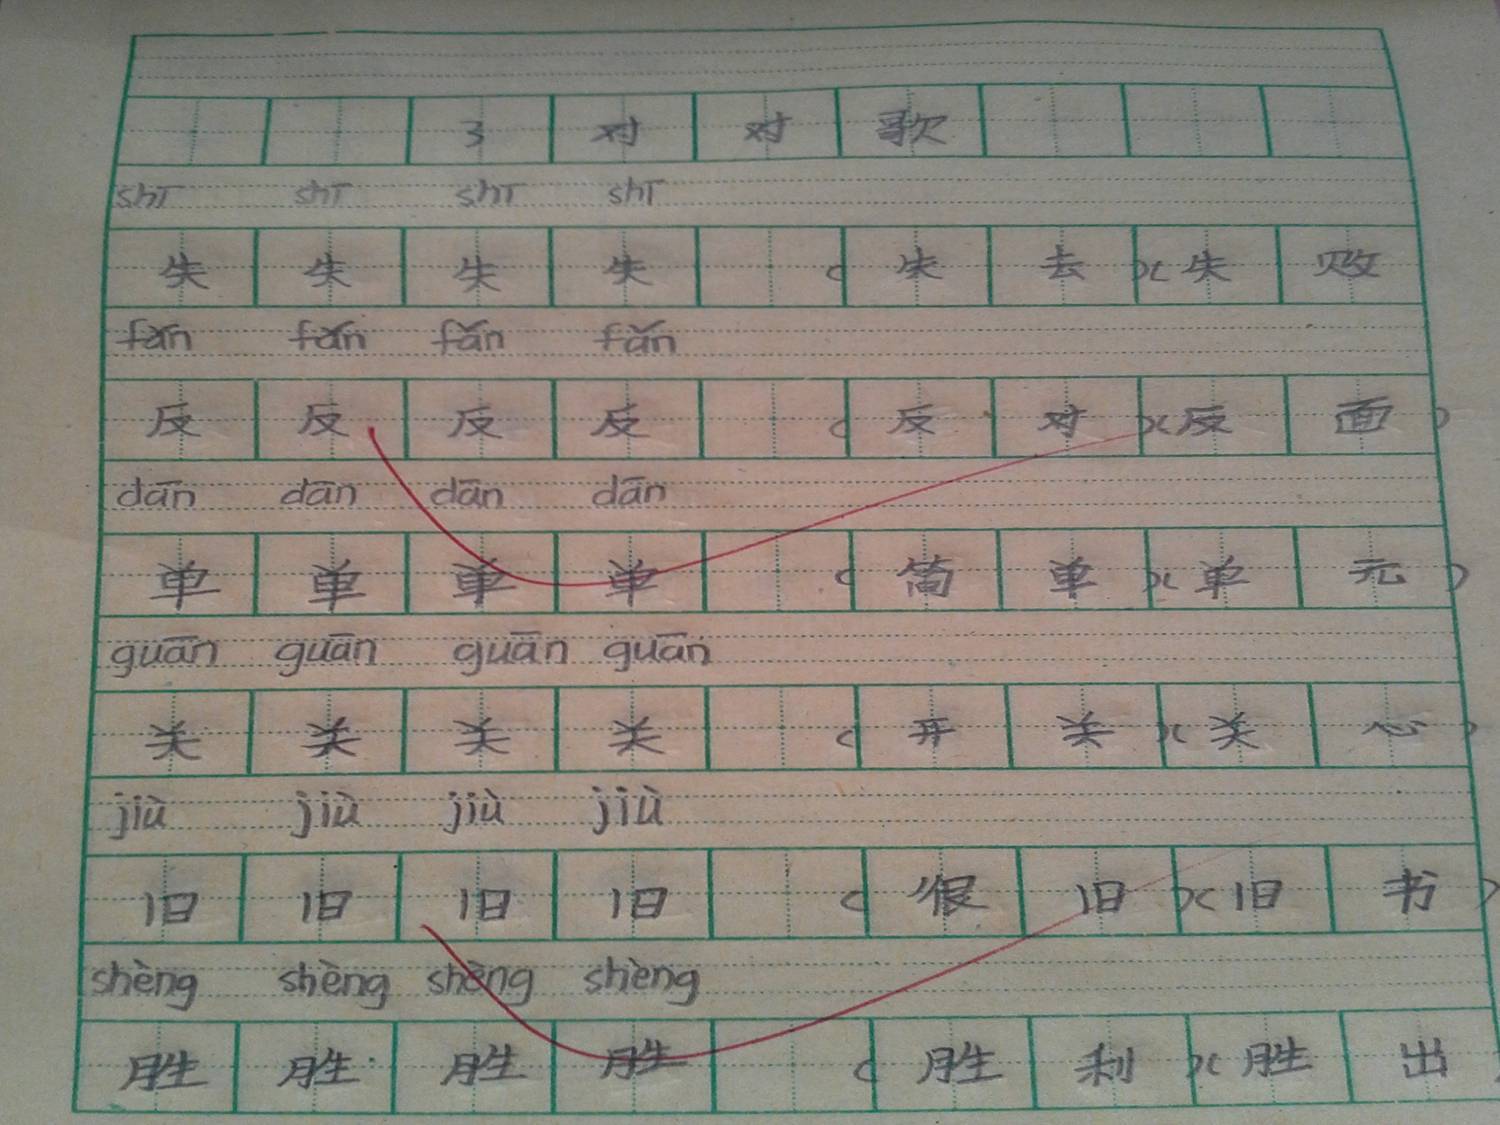 3 对对歌
shī shī shī shī
失失失失 (失去)(失败
fǎn fǎn fǎn fǎn
反反反反 (反对)(反面)
dān dān dān dān
单单单单 (简单)(单元)
guān guān guān guān
关关关关 (开关)(关心)
jiù jiù jiù jiù
旧旧旧旧 (很旧)(旧书)
shèng shèng shèng shèng
胜胜胜胜 (胜利)(胜出